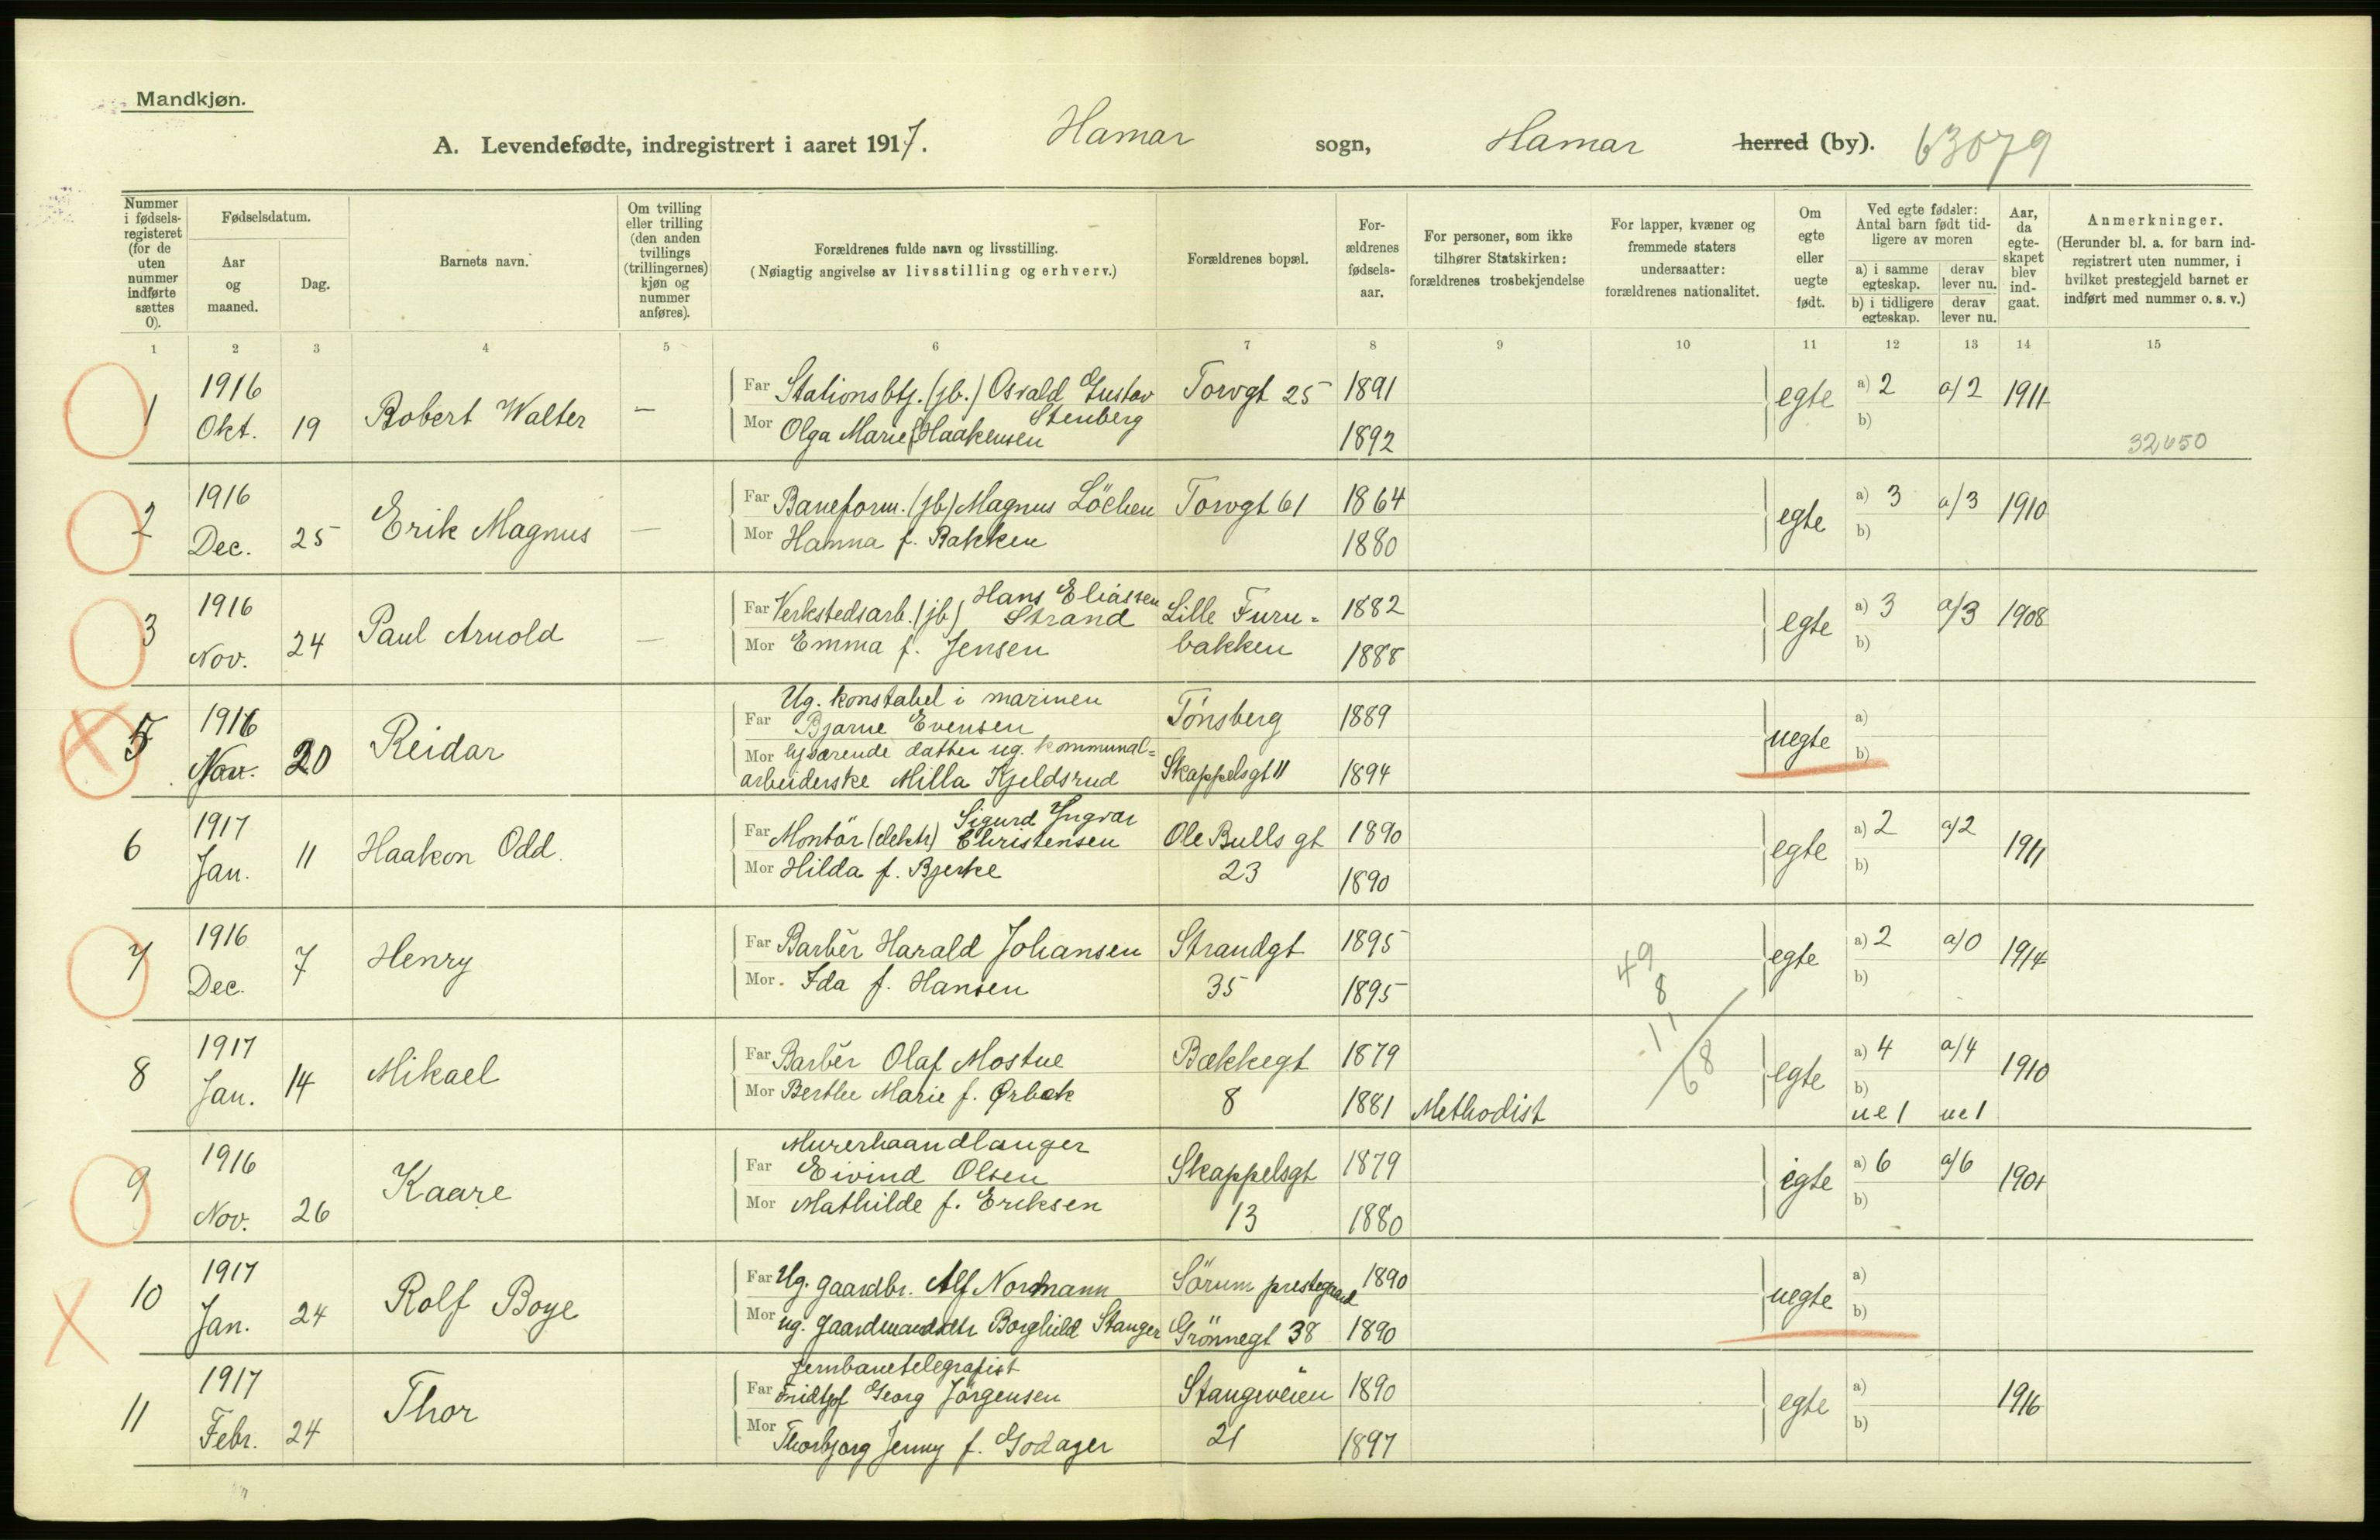 Mandkjøn.
A. Levendefødte, indregistrert i aaret 1917. Hamar sogn, Hamar herred (by). 63079
Nummer i fødsels-registeret (for de uten nummer indførte sættes 0).
Fødselsdatum.
Aar og maaned.
Dag.
Barnets navn.
Om tvilling eller trilling (den anden tvillings (trillingernes) kjøn og nummer anføres).
Forældrenes fulde navn og livsstilling.
(Nøiagtig angivelse av livsstilling og erhverv.)
Forældrenes bopæl.
For-ældrenes fødsels-aar.
For personer, som ikke tilhører Statskirken: forældrenes trosbekjendelse
For lapper, kvæner og fremmede staters undersaatter: forældrenes nationalitet.
Om egte eller uegte født.
Ved egte fødsler: Antal barn født tid-ligere av moren
a) i samme egteskap. derav lever nu.
b) i tidligere egteskap. derav lever nu.
Aar, da egte-skapet blev ind-gaat.
Anmerkninger.
(Herunder bl. a. for barn ind-registrert uten nummer, i hvilket prestegjeld barnet er indført med nummer o. s. v.)
1 2 3 4 5 6 7 8 9 10 11 12 13 14 15
1 1916 Okt. 19 Robert Walter —
Far Stationsbtj. (jb.) Osvald Gustav Stenberg Torvgt 25 1891 egte a) 2 a/2 1911
Mor Olga Marie f. Haakensen 1892 b) 32650
2 1916 Dec. 25 Erik Magnus —
Far Baneform. (jb) Magnus Löchen Torvgt 61 1864 egte a) 3 a/3 1910
Mor Hanna f. Bakken 1880 b)
3 1916 Nov. 24 Paul Arnold —
Far Verkstedsarb. (jb) Hans Eliassen Strand Lille Furu- 1882 egte a) 3 a/3 1908
Mor Emma f. Jensen bakken 1888 b)
5 1916 Nov. 20 Reidar
Ug. konstabel i marinen
Far Bjarne Evensen Tönsberg 1889 uegte a)
Mor hjværende datter ug. kommunal=
arbeiderske Milla Kjeldsrud Skappelsgt 11 1894 b)
6 1917 Jan. 11 Haakon Odd.
Far Montör (elektr) Sigurd Yngvar Christensen Ole Bulls gt 1890 egte a) 2 a/2 1911
Mor Hilda f. Bjerke 23 1890 b)
7 1916 Dec. 7 Henry
Far Barbér Harald Johansen Strandgt 1895 egte a) 2 a/0 1914
Mor Ida f. Hansen 35 1895 b)
49
8
11
68
8 1917 Jan. 14 Mikael
Far Barbér Olaf Mostue Bækkegt 1879 egte a) 4 a/4 1910
Mor Berthe Marie f. Ørbæk 8 1881 Methodist b) ue 1 ue 1
9 1916 Nov. 26 Kaare
Murerhaandlanger
Far Eivind Olsen Skappelsgt 1879 egte a) 6 a/6 1901
Mor Mathilde f. Eriksen 13 1880 b)
10 1917 Jan. 24 Rolf Boye
Far Ug. gaardbr. Alf Nordmann Sörum prestegaard 1890 uegte a)
Mor ug. Borghild Stanger Grönnegt 38 1890 b)
11 1917 Febr. 24 Thor
Jernbanetelegrafist
Far Fridtjof Georg Jörgensen Stangeveien 1890 egte a) 1916
Mor Thorbjorg Jenny f. Godager 21 1897 b)